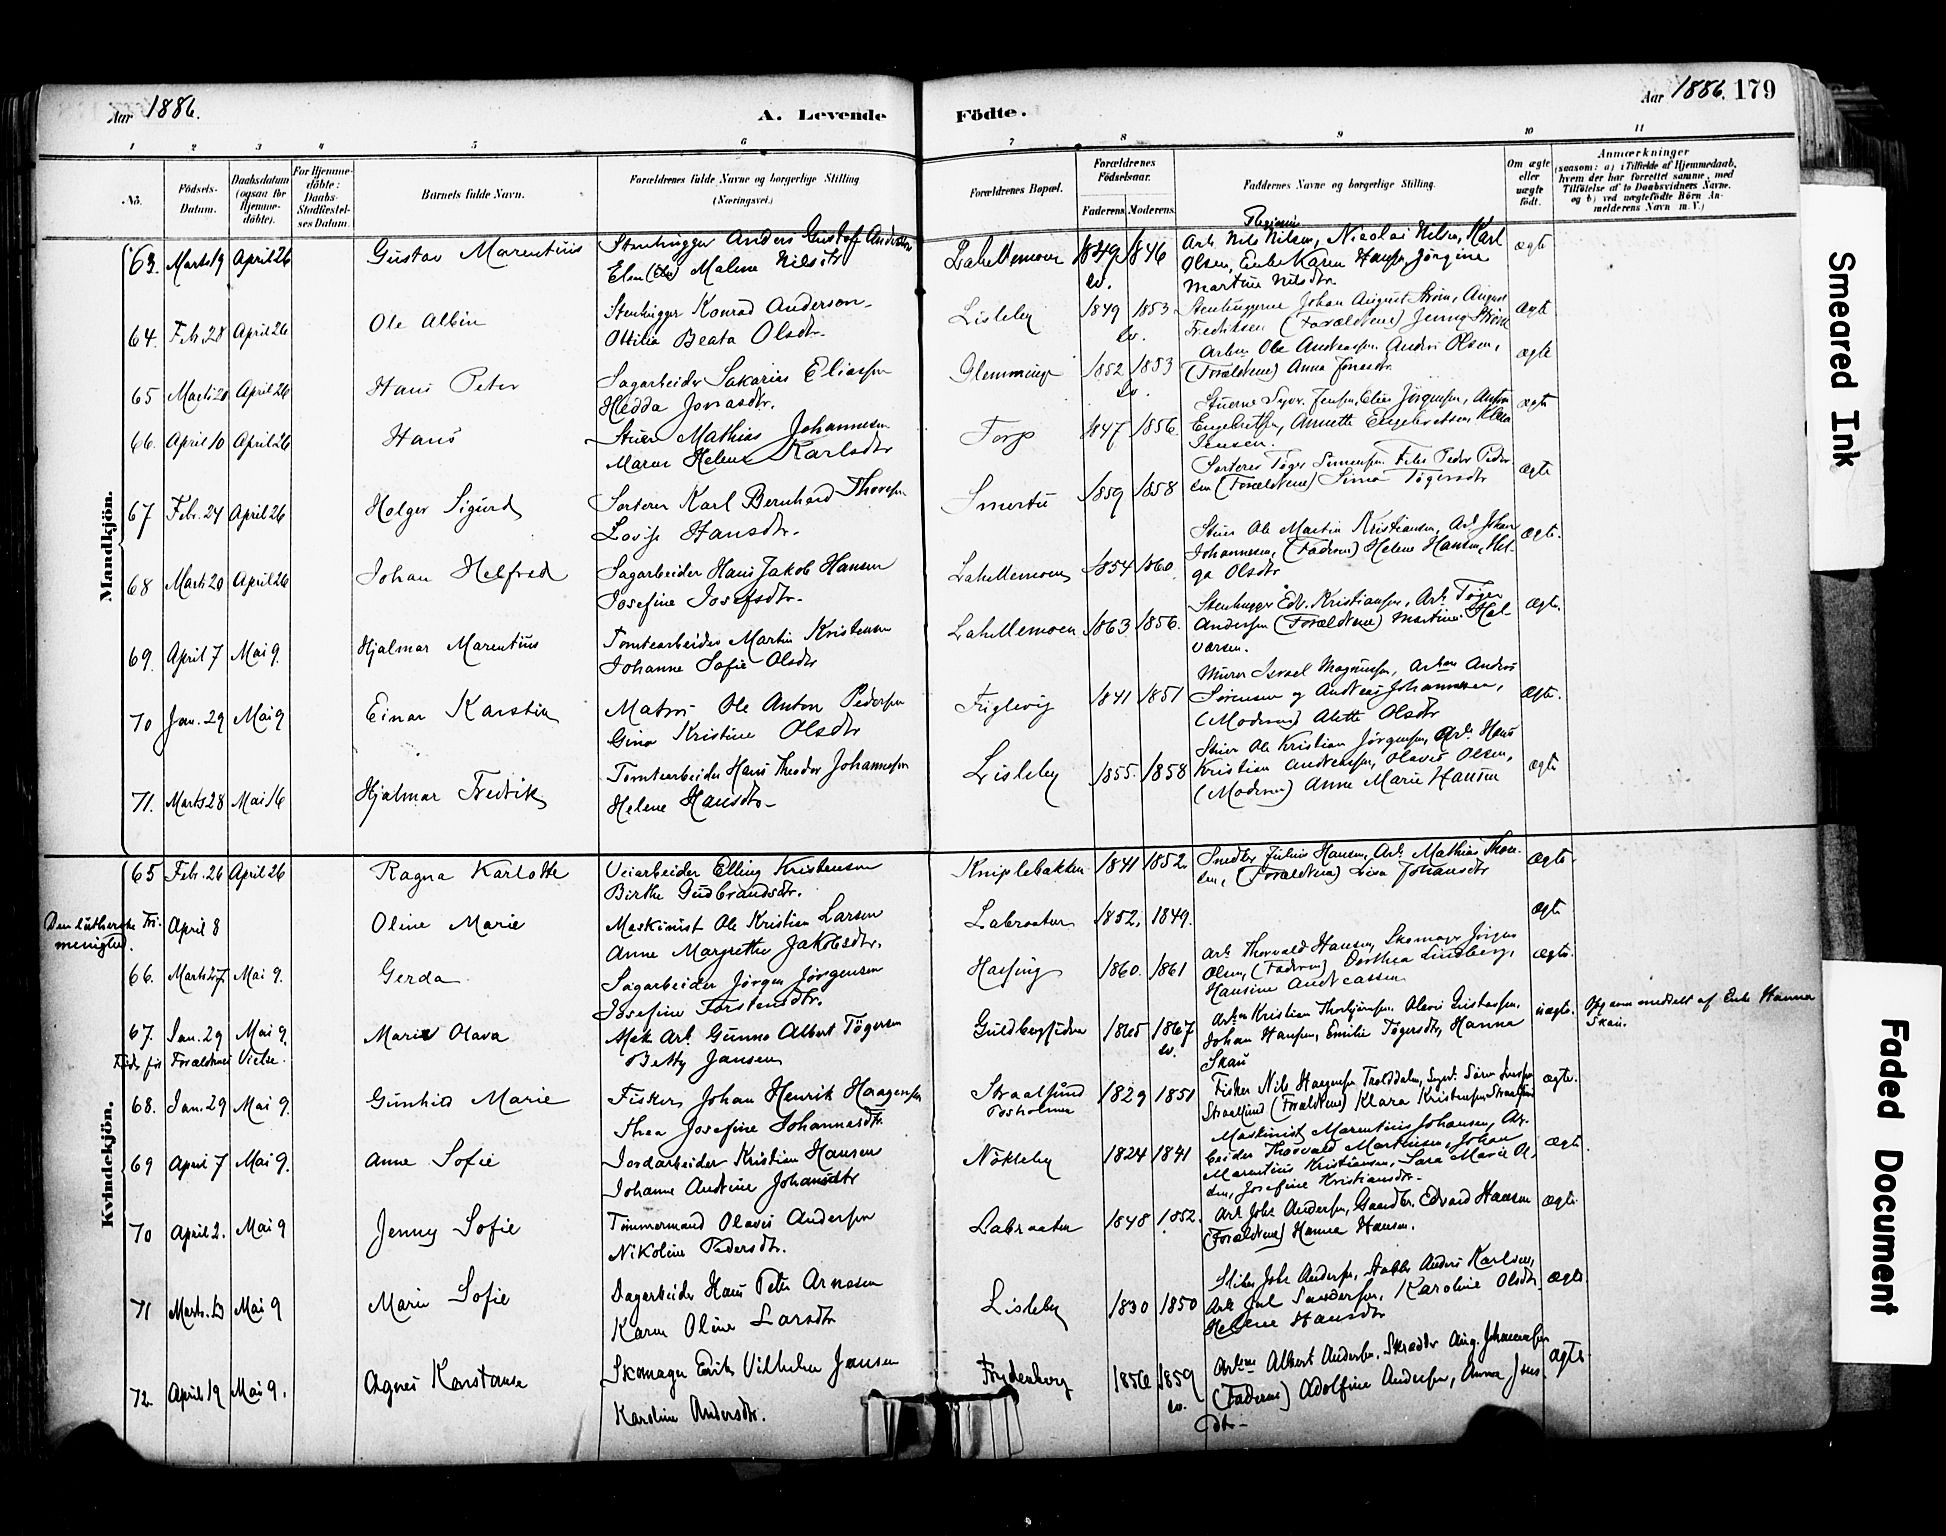 Aar 1886.
A. Levende
Födte.
Aar 1886. 179
1 2 3 4 5 6 7 8 9 10 11
No.
Födsels-
Datum.
Daabsdatum
(ogsaa for
Hjemme-
döbte).
For Hjemme-
döbte:
Daabs-
Stadfæstel-
ses Datum.
Barnets fulde Navn.
Forældrenes fulde Navne og borgerlige Stilling
(Næringsvei.)
Forældrenes Bopæl.
Forældrenes
Födselsaar.
Faderens Moderens
Faddernes Navne og borgerlige Stilling.
Om ægte
eller
uægte
födt.
Anmærkninger
(saasom: a) i Tilfælde af Hjemmedaab,
hvem der har forrettet samme, med
Tilföielse af to Daabsvidners Navne,
og b) ved uægtefödte Börn An-
melderens Navn m. V.)
Mandkjön.
63. Marts 19 April 26 Gustav Marentius Stenhugger Anders Gustaf Anderson
Elen Malene Nilsdtr Lahellemoen 1849 1846 ev. Arb. Nils Nilsen, Nicolai Nilsen, Karl
Olsen, Enke Karen Hansen, Jørgine
Martine Nilsdtr. ægte
64. Febr. 28 April 26 Ole Albin Stenhugger Konrad Anderson
Ottilia Beata Olsdtr. Lisleby 1849 1853 ev. Stenhuggerne Johan August Strøm, August
Fredriksen (Forældrene) Jenny Strøm ægte
65 Marts 20 April 26 Hans Peter Sagarbeider Sakarias Eliassen
Hedda Jonasdtr. Glemminge 1852 1853 ev. Arbm. Ole Andreassen, Anders Olsen,
(Forældrene) Anna Jonasdtr. ægte
66. April 10 April 26 Hans Stuer Mathias Johannesen
Maren Helene Karlsdtr Torp 1847 1856 Stuerne Syver Jensen, Elias Jørgensen, Anton
Engebretsen, Annette Engebretsen, Klara
Jensen. ægte
67 Febr. 24 April 26 Holger Sigurd Sorterer Karl Bernhard Thoresen
Lovise Hansdtr. Smertu 1859 1858 Sorterer Tøger Simensen, Peder Peder-
sen (Forældrene) Sima Tøgersdtr ægte
68 Marts 20 April 26 Johan Helfred Sagarbeider Hans Jakob Hansen
Josefine Josefsdtr. Lahellemoen 1854 1860 Stuer Ole Martin Kristiansen, Arb. Johan
Johannesen, (Fadren) Helene Hansen, Hel-
ga Olsdtr ægte.
69. April 7 Mai 9. Hjalmar Marentius Tomtearbeider Martin Kristensen
Johanne Sofie Olsdtr Lahellemoen 1863 1856. Stenhugger Edv. Kristiansen, Arb. Tøger
Andersen (Forældrene) Martine Hal-
vorsen. ægte.
70 Jan. 29 Mai 9 Einar Karstin Matros Ole Anton Pedersen
Gina Kristine Olsdtr 1841 1851 Murer Israel Magnussen, Arbm Anders
Sørensen og Andreas Johannesen,
(Modren) Alette Olsdtr ægte.
71. Marts 28 Mai 16 Hjalmar Fredrik Tomtearbeider Hans Theodor Johannesen
Helene Hansdtr. Lisleby 1855. 1858 Stuer Ole Kristian Jørgensen, Arb. Hans
Kristian Andreassen, Olaves Olsen,
(Modren) Anne Marie Hansen ægte
Kvindekjön.
65 Febr. 26 April 26 Ragna Karlotte Veiarbeider Elling Kristensen
Birthe Gudbrandsdtr. Kniplebakken 1841 1852. Smed Julius Hansen, Arb. Mathias Thor-
sen, (Forældrene) Lisa Johansdtr ægte.
Den lutherske Fri-
menighed. April 8 Oline Marie Maskinist Ole Kristian Larsen
Anne Margrethe Jakobsdtr. Labraaten 1852. 1849. ægte
66. Marts 27 Mai 9. Gerda Sagarbeider Jørgen Jørgensen
Josefine Torstensdtr. 1860. 1861 Arb. Thorvald Hansen, Skomager Jørgen
Olsen, (Fadren) Dorthea Lindberg,
Hansine Andreassen ægte.
67. Jan. 29 Mai 9. Marie Olava Mek. Arb. Gunno Albert Tögersen
Betty Jansen Guldbergsiden 1865 1867 ev. Arbm Kristian Thorbjørnsen, Olava Gustavsen,
Johan Hansen, Emilie Tøgersdtr, Hanna
Skau uægte. Opg. som meddelt af Enke Hanna
Skau.
Födt för Forældrenes Vielse.
68. Jan. 29 Mai 9. Gunhild Marie Fisker Johan Henrik Haagensen
Thea Josefine Johannesdtr. Straalsund
Torsholmen 1829 1851 Fisker Nils Haagensen Trolddalen, Sigurd Sören Jensen
Straalsund (Forældrene) Klara Kristensen Straalsund ægte.
69 April 7 Mai 9. Anne Sofie Jordarbeider Kristian Hansen
Johanne Andrine Johansdtr Nökleby 1824 1841 Maskinist Marentius Johansen, Ar-
beider Thorvald Martinsen, Johan
Marentius Kristiansen, Sara Marie Ol-
sen, Josefine Kristiansdtr. ægte
70 April 2. Mai 9 Jenny Sofie Tömmermand Olaves Andersen
Nikoline Pedersdtr. Labraaten 1848 1852. Arb. Johs Andersen, Gaardbr. Edvard Hansen
(Forældrene) Hanna Hansen. ægte.
71 Marts. 13 Mai 9 Marie Sofie Dagarbeider Hans Peter Arnesen
Karen Oline Larsdtr Lisleby 1830 1850 Sliber Johs Andersen, Stabler Anders Karlsen,
Arb. Jul Sandersen, Karoline Olsdtr,
Helene Hansdtr ægte.
72. April 19 Mai 9. Agnes Konstanse Skomager Erik Vilhelm Jansen
Karoline Andersdtr. Frydenberg 1856 1859 ev. Arbmene Albert Andersen, Skrædder Aug. Johannessen
(Fadren) Adolfine Andersen, Anna Jens-
dtr. ægte.
Smeared Ink
Faded Document